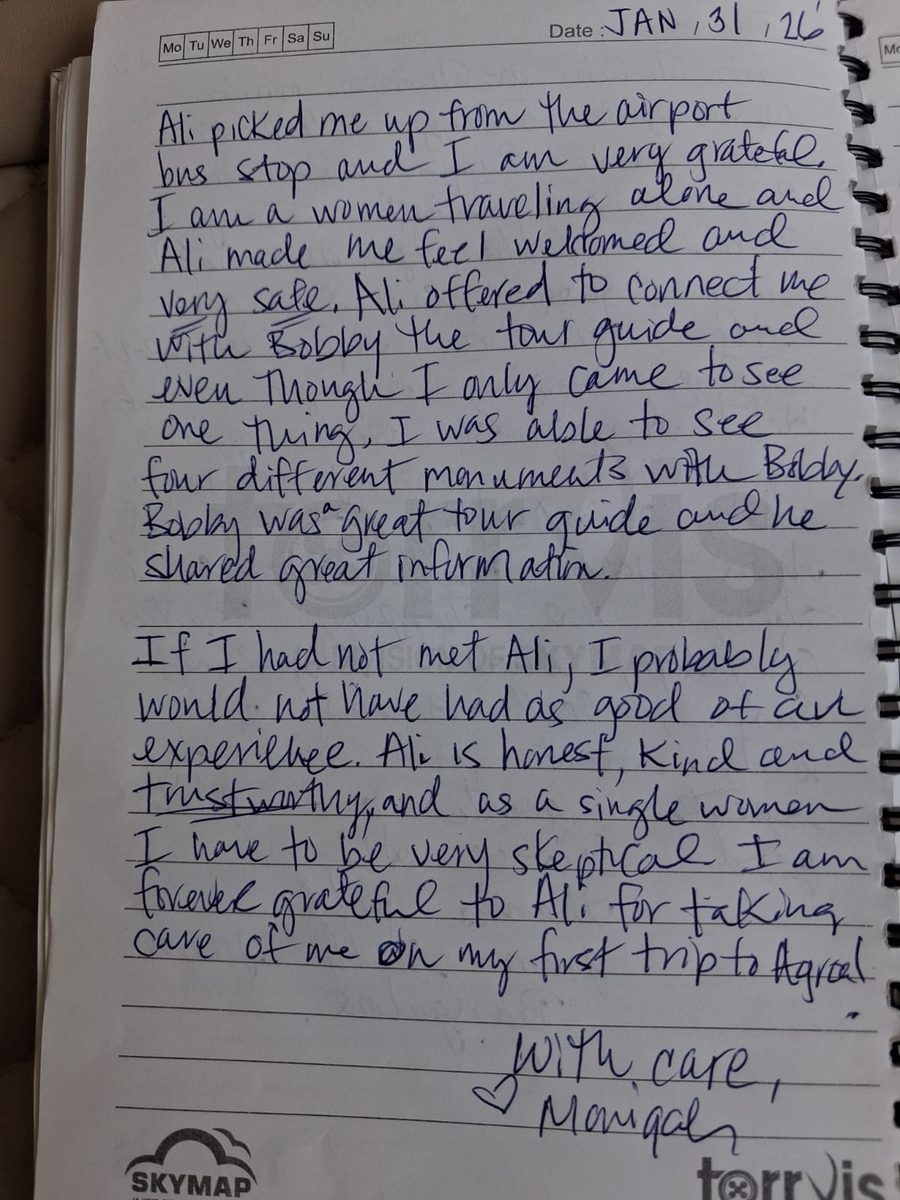 Mo Tu We Th Fr Sa Su
Date : JAN , 31 , 26
Ali picked me up from the airport
bus stop and I am very grateful.
I am a women traveling alone and
Ali made me feel welcomed and
very safe. Ali offered to connect me
with Bobby the tour guide and
even though I only came to see
one thing, I was able to see
four different monuments with Bobby.
Bobby was a great tour guide and he
shared great information.
If I had not met Ali, I probably
would not have had as good of an
experience. Ali is honest, kind and
trustworthy, and as a single women
I have to be very skeptical I am
forever grateful to Ali for taking
care of me on my first trip to Agra!
With care,
♡
SKYMAP
torrvis